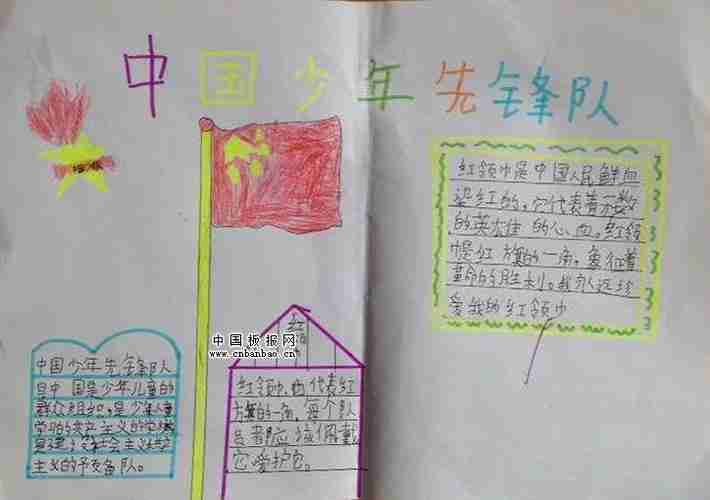 中国少年先锋队
红领巾是中国人民鲜血
染红的。它代表着无数
的英雄 的心血。红领
巾是红旗的一角，象征着
革命的胜利。我永远
爱我的红领巾
中国板报网
www.cnbanbao.cn
红
中国少年先锋队
是中国少年儿童的
群众组织，是少年儿童
学习共产主义的
建 社会主义
主义的予备队。
红领巾 代表红
旗的一角，每个队
员都应该佩戴
它爱护它。